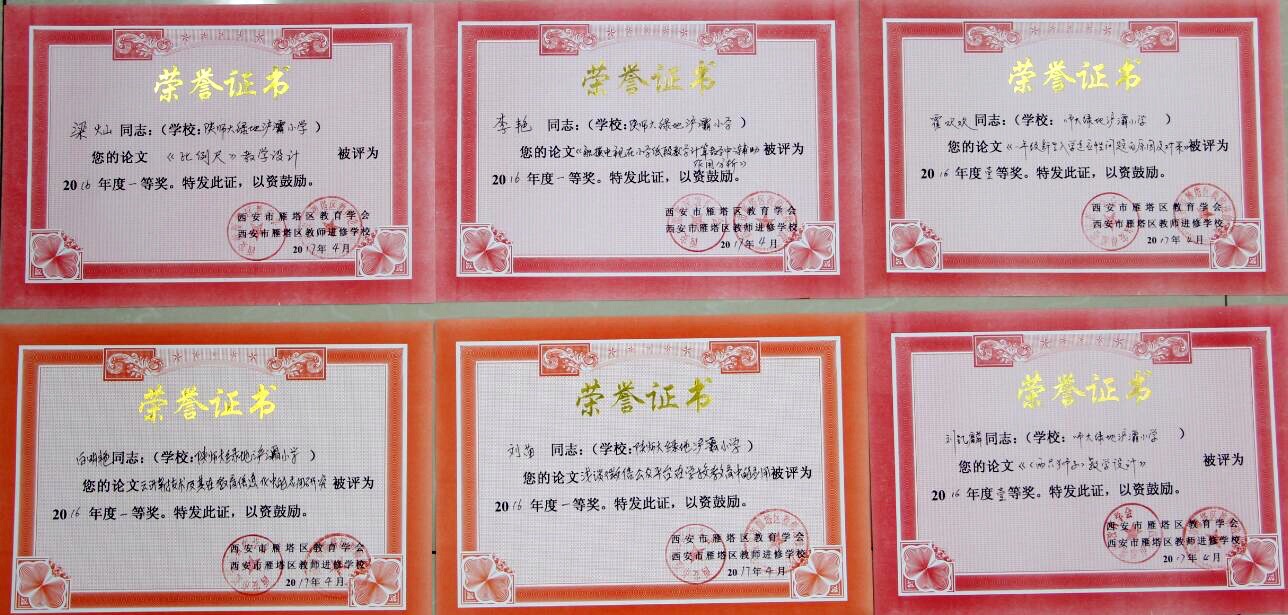 荣誉证书
梁灿 同志：（学校：陕师大绿地浐灞小学 ）
您的论文 《比例尺》教学设计 被评为
2016 年度一等奖。特发此证，以资鼓励。
西安市雁塔区教育学会
西安市雁塔区教师进修学校
2017年4月
荣誉证书
李艳 同志：（学校：陕师大绿地浐灞小学 ）
您的论文《触摸电视在小学低段数学计算教学中辅助 被评为
作用分析》
2016 年度一等奖。特发此证，以资鼓励。
西安市雁塔区教育学会
西安市雁塔区教师进修学校
2017年4月
荣誉证书
霍欢欢 同志：（学校：师大绿地浐灞小学 ）
您的论文《一年级新生入学适应性问题的原因及对策》被评为
2016 年度壹等奖。特发此证，以资鼓励。
西安市雁塔区教育学会
西安市雁塔区教师进修学校
2017年4月
荣誉证书
同志：（学校：陕师大绿地浐灞小学 ）
您的论文云计算技术及其在教育信息化中的应用研究 被评为
2016 年度一等奖。特发此证，以资鼓励。
西安市雁塔区教育学会
西安市雁塔区教师进修学校
2017年4月
荣誉证书
刘苗 同志：（学校：陕师大绿地浐灞小学 ）
您的论文浅谈微信公众平台在学校教育中的应用 被评为
2016 年度一等奖。特发此证，以资鼓励。
西安市雁塔区教育学会
西安市雁塔区教师进修学校
2017年4月
荣誉证书
刘凯麟 同志：（学校：师大绿地浐灞小学 ）
您的论文 《《两只狮子》教学设计》 被评为
2016 年度壹等奖。特发此证，以资鼓励。
西安市雁塔区教育学会
西安市雁塔区教师进修学校
2017年4月